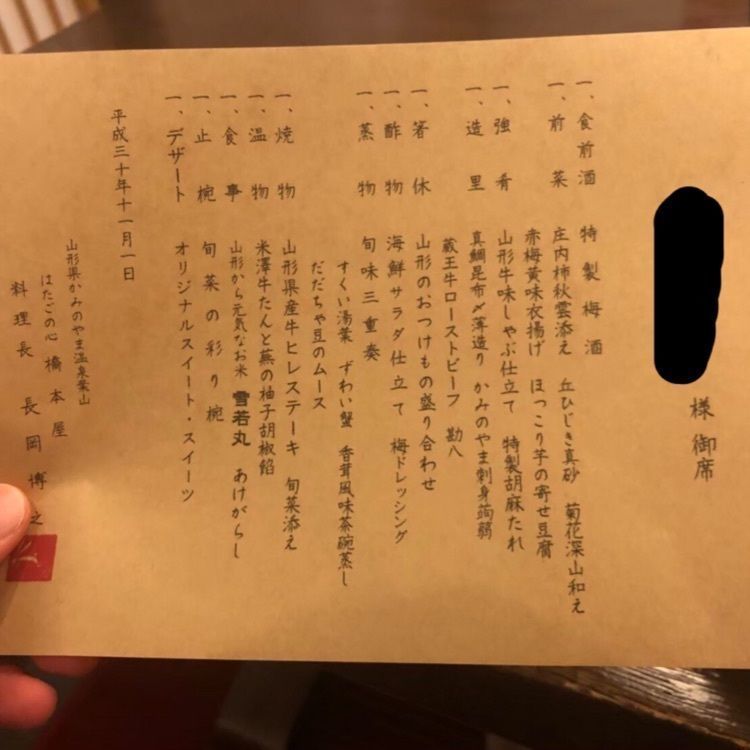 様 御席
一、食前酒 特製梅酒
一、前菜 庄内柿秋雲添え 丘ひじき真砂 菊花深山和え
赤梅黄味衣揚げ ほっこり芋の寄せ豆腐
一、強肴 山形牛味しゃぶ仕立て 特製胡麻たれ
一、造里 真鯛昆布〆薄造り かみのやま刺身蒟蒻
蔵王牛ローストビーフ 勘八
一、箸休 山形のおつけもの盛り合わせ
一、酢物 海鮮サラダ仕立て 梅ドレッシング
一、蒸物 旬味三重奏
すくい湯葉 ずわい蟹 香茸風味茶碗蒸し
だだちゃ豆のムース
一、焼物 山形県産牛ヒレステーキ 旬菜添え
一、温物 米澤牛たんと蕪の柚子胡椒餡
一、食事 山形から元気なお米 雪若丸 あけがらし
一、止椀 旬菜の彩り椀
一、デザート オリジナルスイート・スイーツ
平成三十年十一月一日
山形県かみのやま温泉葉山
はたごの心 橋本屋
料理長 長岡博之